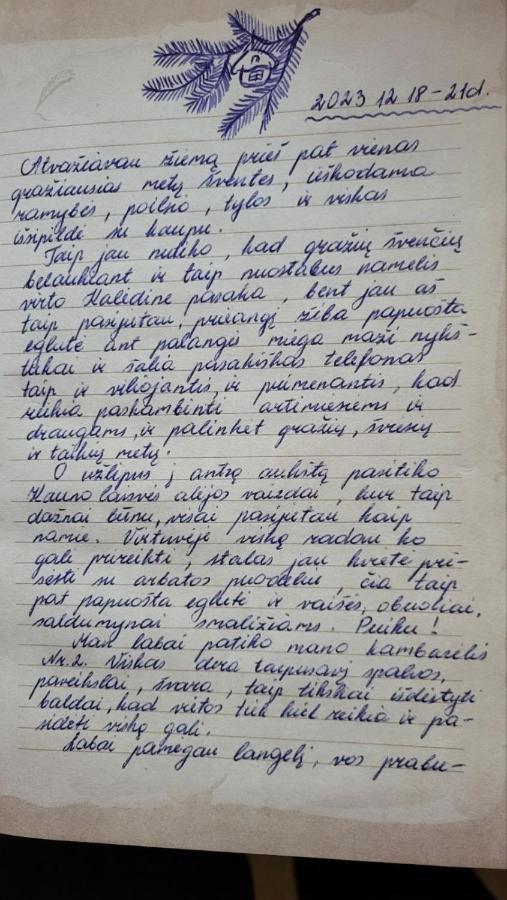 2023 12 18-21d.
Atvažiavau žiemą prieš pat vienas
gražiausias metų šventes, ieškodama
ramybės, poilsio, tylos ir viskas
išsipildė su kaupu.
Taip jau nutiko, kad gražių švenčių
belaukiant ir taip nuostabus namelis
virto Kalėdine pasaka, bent jau aš
taip pasijutau, prieangį žiba papuošta
eglutė ant palangės miega maži nykš-
tukai ir šalia pasakiškas telefonas
taip ir viliojantis, ir primenantis, kad
reikia paskambinti artimiesiems ir
draugams, ir palinkėt gražių, šviesų
ir taikių metų.
O užlipus į antrą aukštą pasitiko
Kauno laisvės alėjos vaizdai, kur taip
dažnai būnu, visai pasijutau kaip
namie. Virtuvėje viską radau ko
gali prireikti, stalas jau kvietė pri-
sėsti su arbatos puodeliu, čia taip
pat papuošta eglutė ir vaišės, obuoliai,
saldumynai smaližiams. Puiku!
Man labai patiko mano kambarėlis
Nr.2. Viskas dera tarpusavį spalvos,
paveikslai, švara, taip tiksliai išdėstyti
baldai, kad vietos tiek kiek reikia ir pa-
sidėti viską gali.
Labai pamėgau langelį, vos prabu-